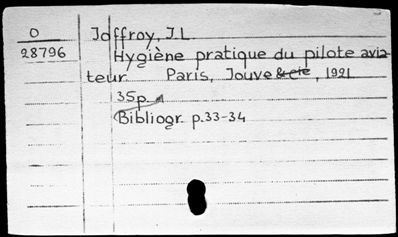 O Joffroy, J.L
28796 Hygiène pratique du pilote avia-
teur Paris, Jouve & cie, 1921
35p
Bibliogr p.33-34